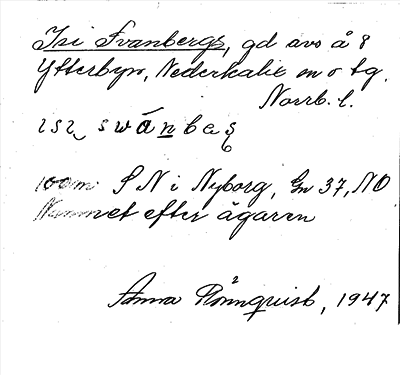 Isi Svanbergs, gd avs å 8
Ytterbyn, Nederkalix sn o tg.
Norrb. l.
ısı swánbæȩ
100 m S N i Nyborg, Gn 37, NO
Namnet efter ägaren
Anna Rönnquist, 1947